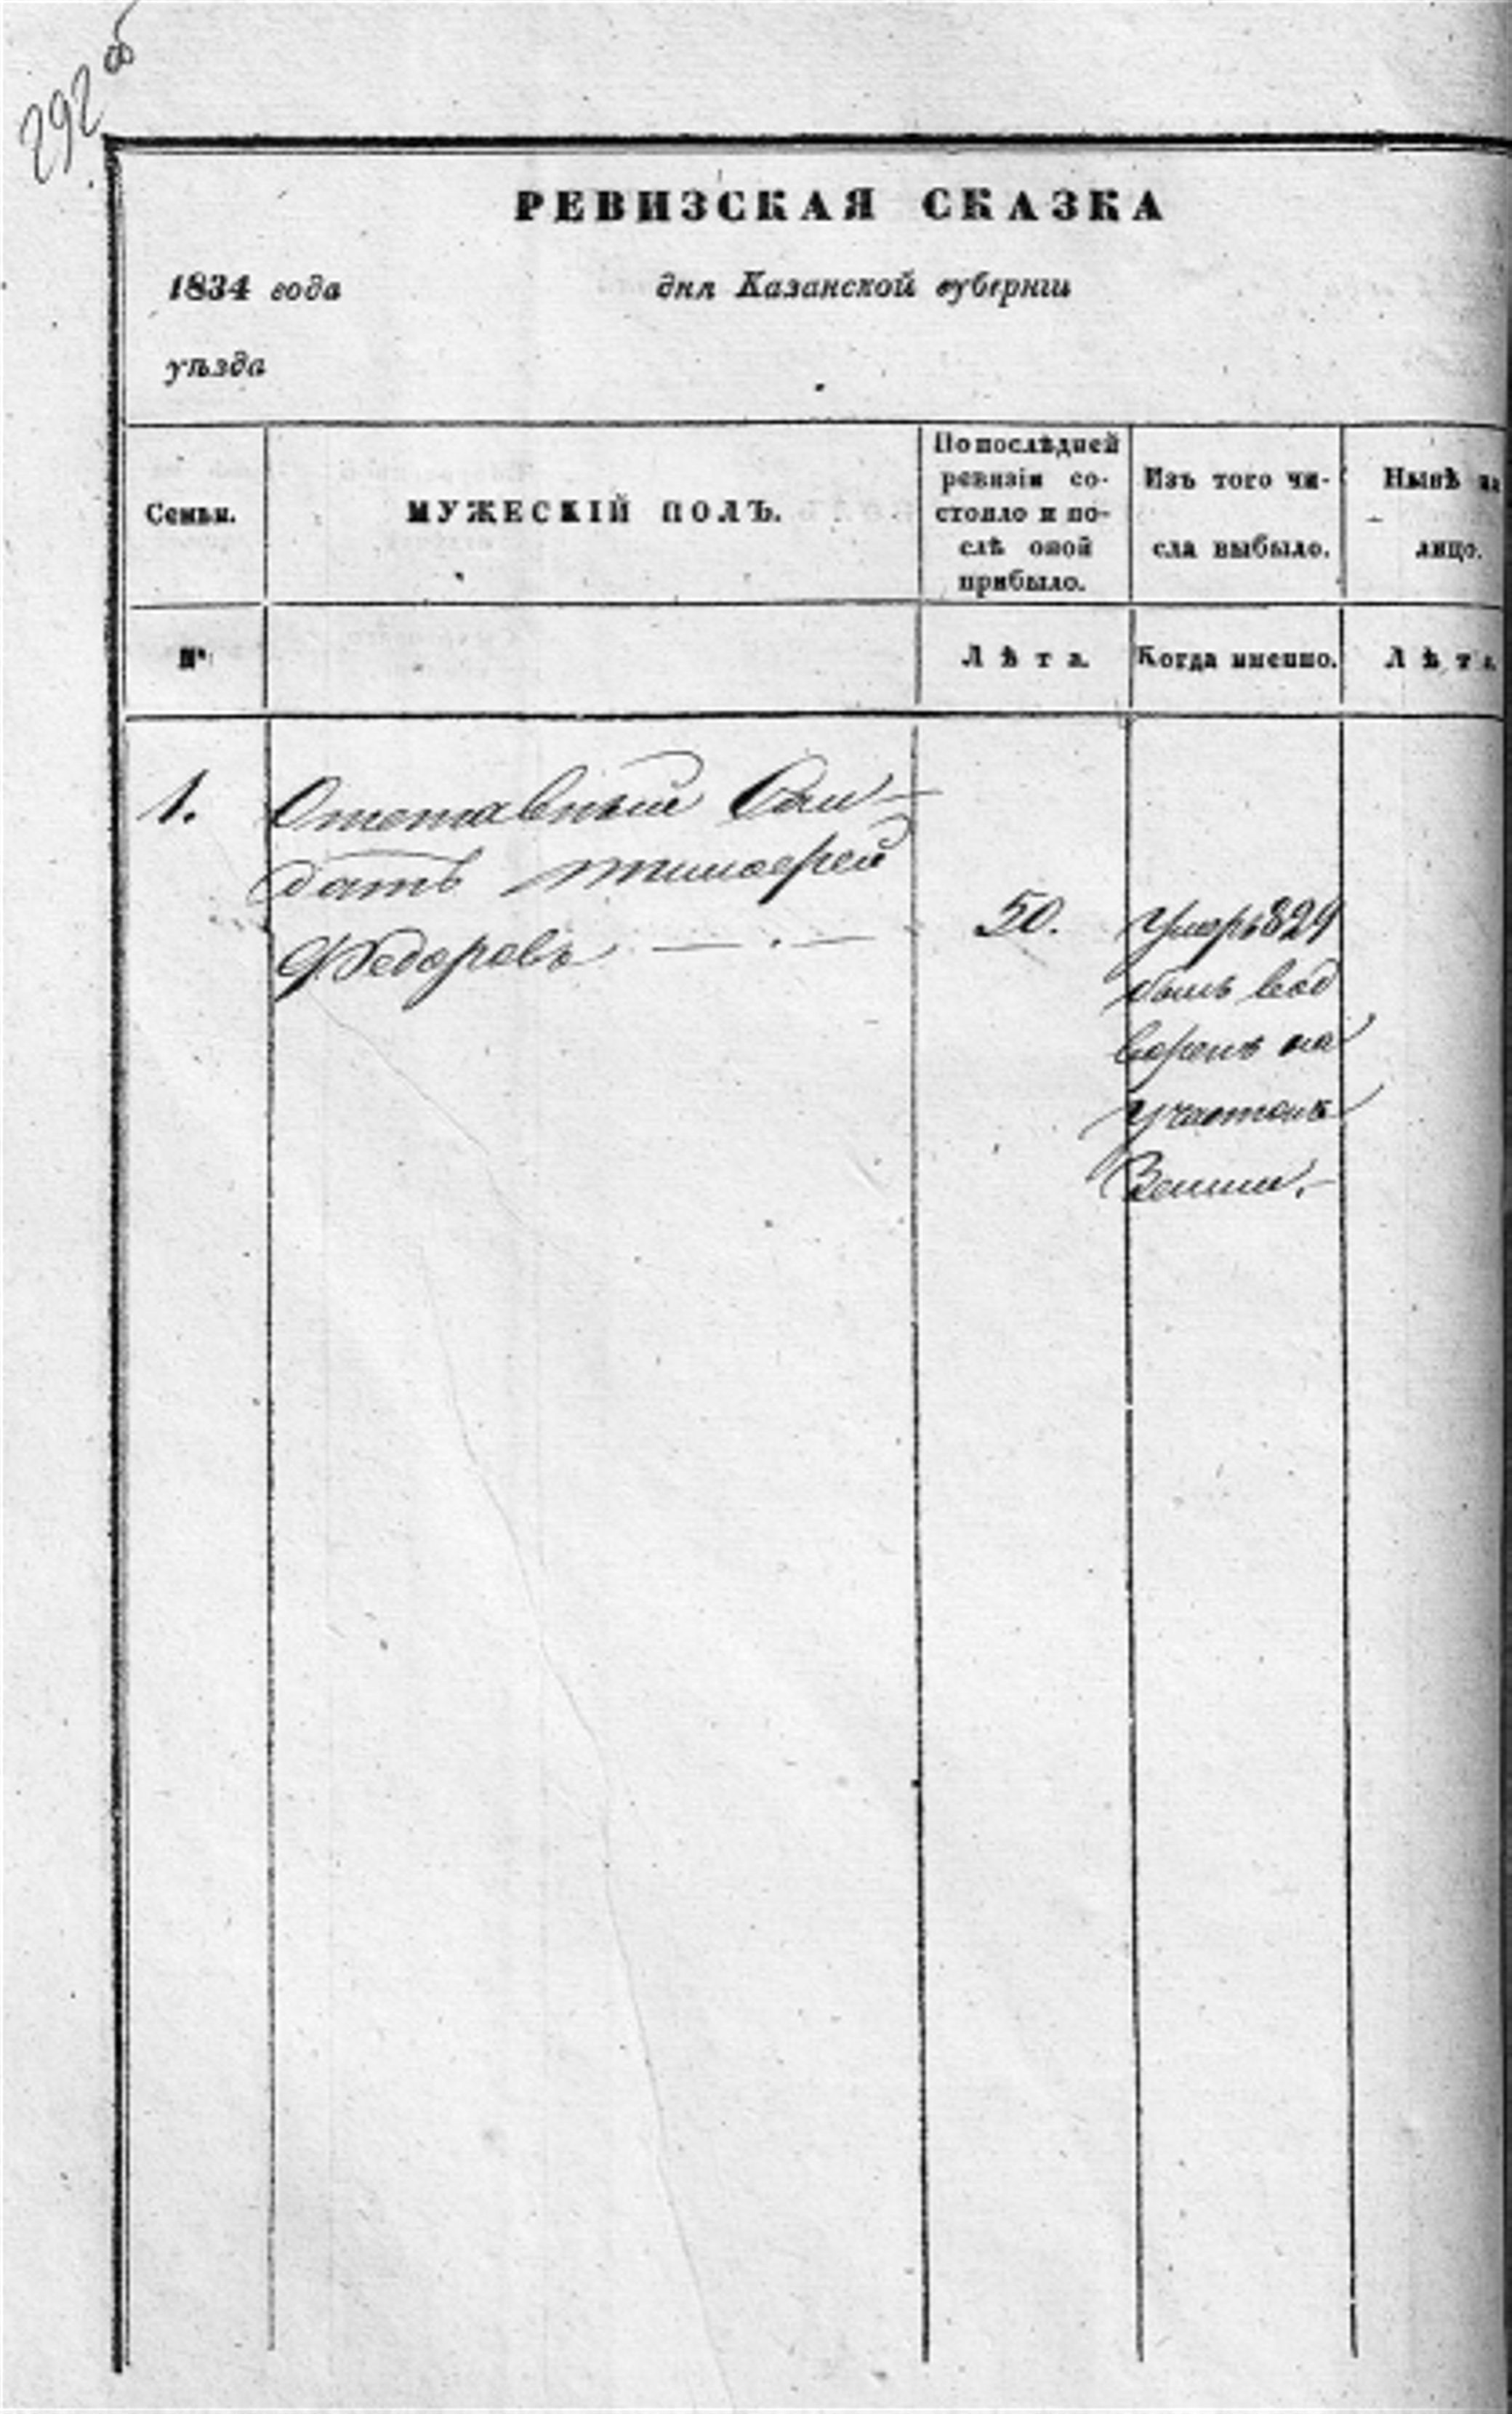 292 об
РЕВИЗСКАЯ СКАЗКА
1834 года дня Казанской губернiи
уѣзда
Семьи.
МУЖЕСКIЙ ПОЛЪ.
По послѣдней
ревизiи со-
стояло и по-
слѣ оной
прибыло.
Изъ того чи-
сла выбыло.
Нынѣ на
лицо.
№
Лѣта.
Когда именно.
Лѣта
1.
Отставный Сол-
датъ Тимофей
Федоровъ
50.
Умеръ 829
былъ вод
воренъ на
участокъ
Земли.